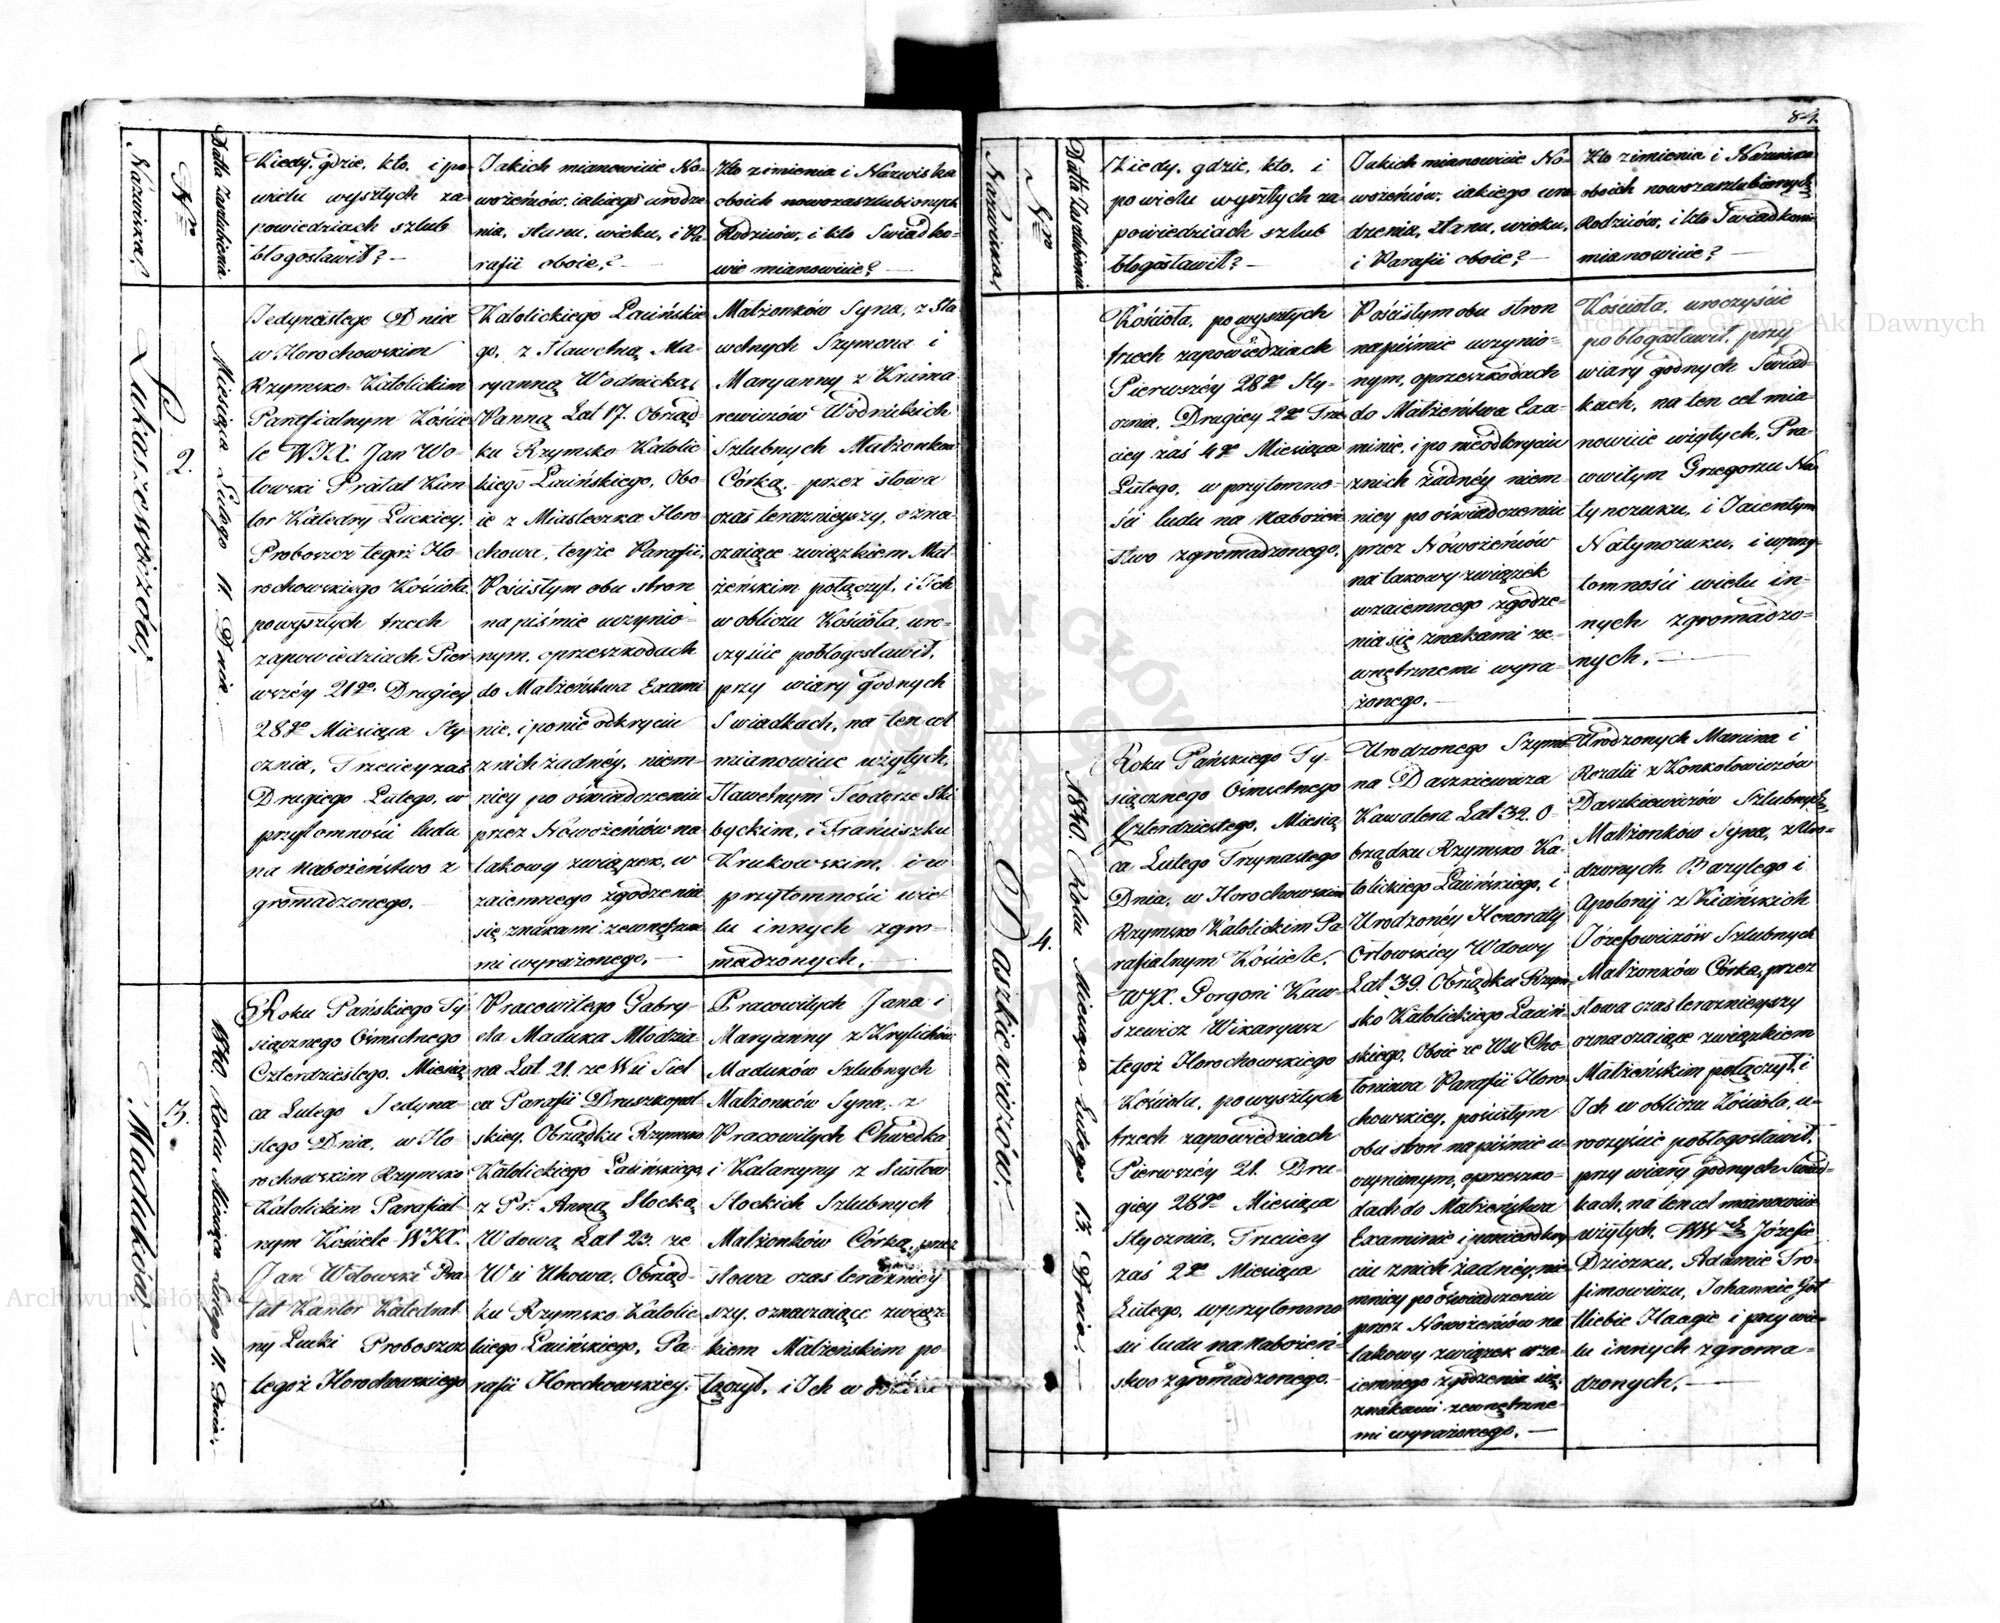 Nazwiska.
Nro
Datta Zaślubienia
Kiedy, gdzie, kto, i po
wielu wyszłych za-
powiedziach szlub
błogosławił? —
Jakich mianowicie No-
wożeńców, iakiego urodze
nia, stanu, wieku, i Pa-
rafii oboie? —
Kto z imienia i Nazwiska
oboich nowozaszlubionych
Rodziców, i kto Swiadko-
wie mianowicie? —
Łukaszewiczów.
2.
Miesiąca Lutego 11. Dnia. —
Jedynastego Dnia
w Horochowskim
Rzymsko-Katolickim
Parafialnym Koście
le WJX. Jan Wo-
łowski Prałat Kan-
tor Katedry Łuckiey,
Proboszcz tegoż Ho-
rochowskiego Kościoła,
po wyszłych trzech
zapowiedziach Pier
wszéy 21go Drugiey
28go Miesiąca Sty-
cznia, Trzeciey zaś
Drugiego Lutego, w
przytomności ludu
na Nabożeństwo z
gromadzonego. —
Katolickiego Łacińskie
go, z Sławetną Ma-
ryanną Wodnicką
Panną Lat 17. Obrząd-
ku Rzymsko Katolic
kiego Łacińskiego, Obo-
ie z Miasteczka Horo-
chowa, teyże Parafii,
Po ścisłym obu stron
na piśmie uczynio-
nym, o przeszkodach
do Małżeństwa Exami
nie, i po nie odkryciu
z nich żadnéy, niem-
niey po oświadczeniu
przez Nowożeńców na
takowy związek, w
zaiemnego zgodzenia
się znakami zewnętrzne
mi wyrażonego. —
Małżonków Syna, z Sła
wetnych Szymona i
Maryanny z Krama
rewiczów Wodnickich
Szlubnych Małżonków
Córką, przez słowa
czas teraznieyszy, ozna-
czaiące związkiem Mał
żeńskim połączył, i Ich
w obliczu Kościoła, uro-
czyście pobłogosławił,
przy wiary godnych
Swiadkach, na ten cel
mianowicie wziętych,
Sławetnym Teodorze Ski
byckim, i Franciszku
Krukowskim, i w
przytomności wie
lu innych zgro-
madzonych. —
Maduków. —
3.
1840. Roku Miesiąca Lutego 11. Dnia. —
Roku Pańskiego Ty-
siącznego Ośmsetnego
Czterdziestego, Miesią
ca Lutego Jedyna-
stego Dnia, w Ho-
rochowskim Rzymsko
Katolickim Parafial
nym Kościele WJX.
Jan Wołowski Pra
łat Kantor Katedral
ny Łucki Proboszcz
tegoż Horochowskiego
Pracowitego Gabry-
ela Maduka Młodzia
na Lat 21. ze Wsi Siel
ca Parafii Druszkopol-
skiey, Obrządku Rzymsko
Katolickiego Łacińskiego,
z Pr. Anną Słocką
Wdową Lat 23. ze
Wsi Uhowa, Obrząd-
ku Rzymsko Katolic
kiego Łacińskiego, Pa-
rafii Horochowskiey.
Pracowitych Jana i
Maryanny z Krylichów
Maduków Szlubnych
Małżonków Syna, z
Pracowitych Chwedka
i Katarzyny z Susłów
Słockich Szlubnych
Małżonków Córką, przez
słowa czas teraźniey
szy, oznaczaiące związ
kiem Małżeńskim po-
łączył, i Ich w
84.
Nazwiska
Nro
Datta Zaszlubienia
Kiedy, gdzie, kto, i
po wielu wyszłych za-
powiedziach szlub
błogosławił? —
Jakich mianowicie No-
wożeńców, iakiego uro-
dzenia, stanu, wieku,
i Parafii oboie? —
Kto z imienia i Nazwiska
oboich nowozaszlubionych
Rodziców, i kto Swiadkowie
mianowicie? —
Kościoła, po wyszłych
trzech zapowiedziach
Pierwszéy 28go Sty-
cznia, Drugiey 2go Trze
ciey zaś 4go Miesiąca
Lutego, w przytomno-
ści ludu na Nabożeń
stwo zgromadzonego.
Po ścisłym obu stron
na piśmie uczynio-
nym, o przeszkodach
do Małżeństwa Exa-
minie, i po nieodkryciu
z nich żadnéy niem
niey po oświadczeniu
przez Nowożeńców
na takowy związek
wzaiemnego zgodze-
nia się znakami ze-
wnętrznemi wyra-
żonego. —
Kościoła, uroczyście
pobłogosławił, przy
wiary godnych Swiad-
kach, na ten cel mia-
nowicie wziętych, Pra-
cowitym Grzegorzu Na
tynczuku, i Jacentym
Natynczuku, i w przy-
tomności wielu in-
nych zgromadzo-
nych. —
Daszkiewiczów.
4.
1840. Roku Miesiąca Lutego 13. Dnia. —
Roku Pańskiego Ty-
siącznego Ośmsetnego
Czterdziestego, Miesią
ca Lutego Trzynastego
Dnia, w Horochowskim
Rzymsko Katolickim Pa
rafialnym Kościele,
WJX. Gorgoni Kaw-
szewicz Wikaryusz
tegoż Horochowskiego
Kościoła, po wyszłych
trzech zapowiedziach
Pierwszéy 21. Dru-
giey 28go Miesiąca
Stycznia, Trzeciey
zaś 2go Miesiąca
Lutego, w przytomno
ści ludu na Nabożeń-
stwo zgromadzonego. —
Urodzonego Szymo
na Daszkiewicza
Kawalera Lat 32. O-
brządku Rzymsko Ka-
tolickiego Łacińskiego, i
Urodzonéy Honoraty
Orłowskiey Wdowy
Lat 39. Obrządku Rzym
sko Katolickiego Łaciń
skiego, Oboie ze Wsi Cho-
łoniowa Parafii Horo-
chowskiey, po ścisłym
obu stron na piśmie u-
czynionym, o przeszko-
dach do Małżeństwa
Examinie i po nieodkry
ciu z nich żadnéy, nie
mniey po oświadczeniu
przez Nowożeńców na
takowy związek wza-
iemnego zgodzenia się,
znakami zewnętrzne-
mi wyrażonego. —
Urodzonych Marcina i
Rozalii z Konkołowiczów
Daszkiewiczów Szlubnych
Małżonków Syna, z Uro-
dzonych Bazylego i
Apolonij z Kiańskich
Józefowiczów Szlubnych
Małżonków Córką, przez
słowa czas teraznieyszy
oznaczaiące związkiem
Małżeńskim połączył, i
Ich w obliczu Kościoła, u-
roczyście pobłogosławił,
przy wiary godnych Swiad-
kach, na ten cel mianowicie
wziętych, Józefie
Dziczku, Adamie Tro-
fimowiczu, Johannie Got
tliebie Haagie i przy wie-
lu innych zgroma-
dzonych. —
Archiwum Główne Akt Dawnych
Archiwum Główne Akt Dawnych